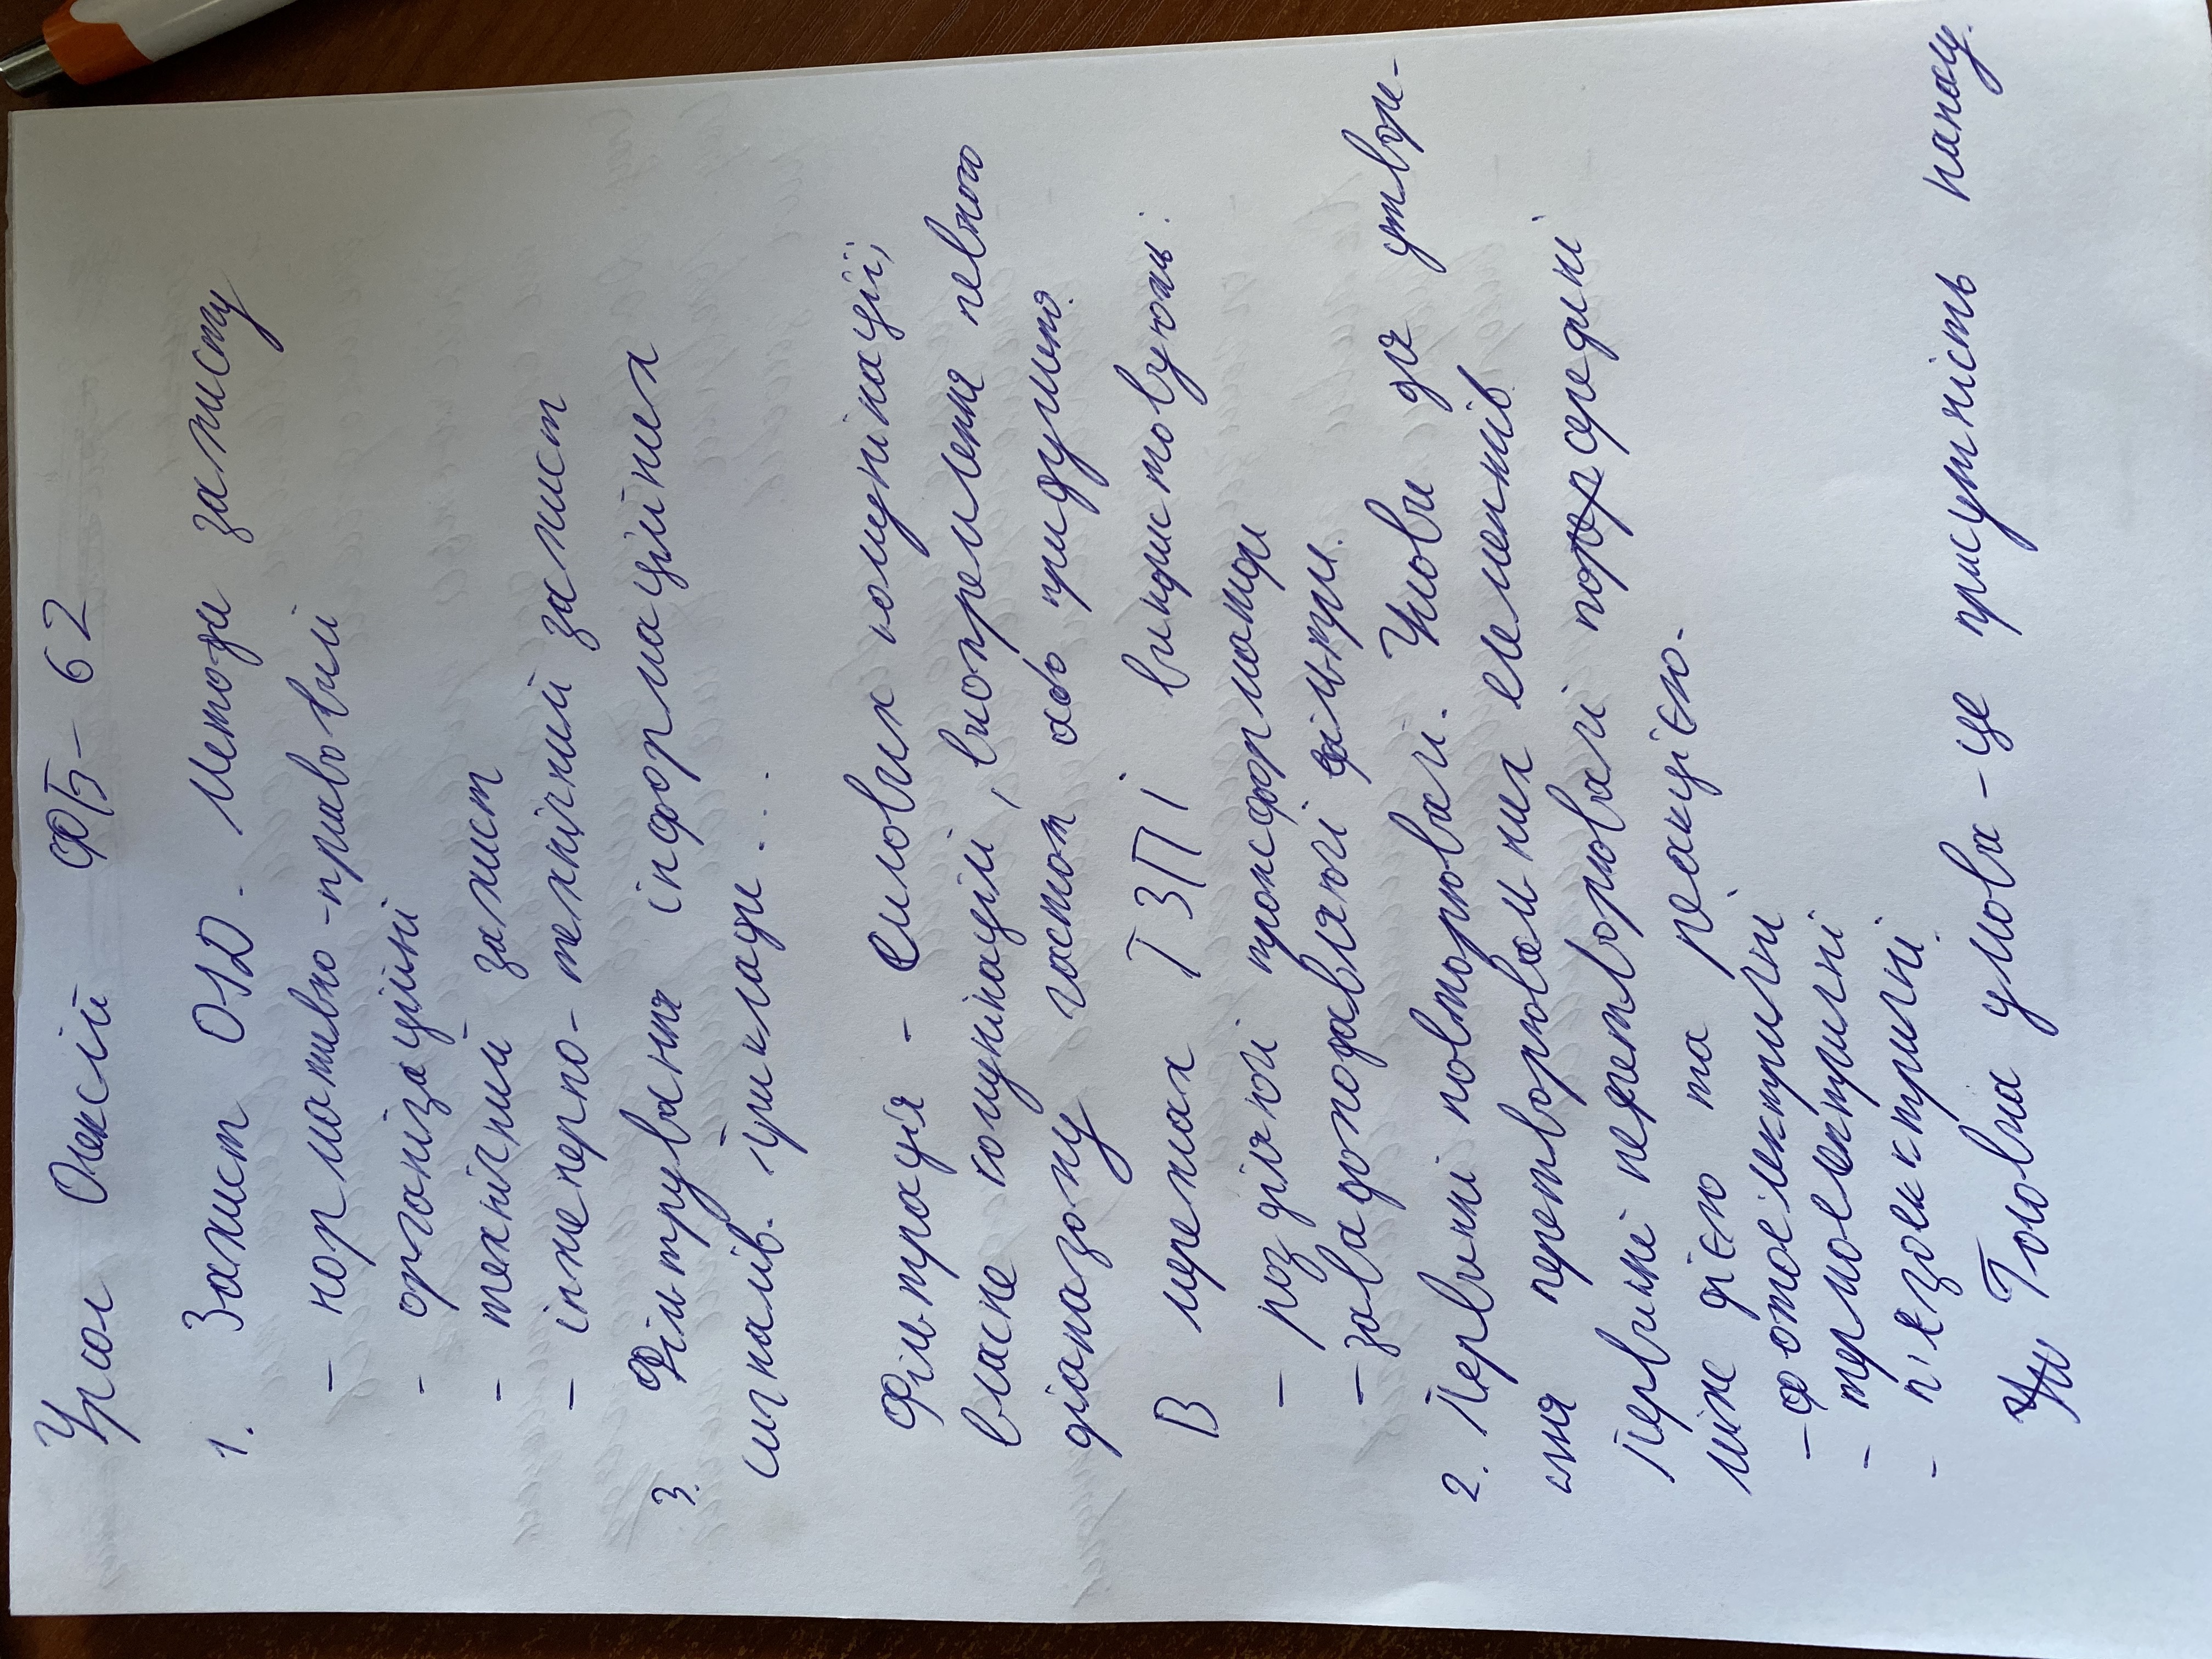 Урсол Олексій ФБ-62
1. Захист ОІД. Методи захисту
- нормативно-правовий
- організаційні
- технічний захист
- інженерно-технічний захист
3. Фільтрування інформаційних
сигналів. Приклади...
Фільтрація - силових комунікації,
власне комунікацій, виокремлення певного
діапазону частот або придушення.
В мережах ТЗПІ використовують:
- розділяючі трансформатори
- завадоподавляючі фільтри.
2. Первинні повторювачі. Умови для утворе-
ння перетворювальних елементів.
Первинні перетворювачі посередині
між дією та реакцією.
- фотоелектричні
- термоелектричні
- п'єзоелектричні
Головна умова - це присутність каналу.